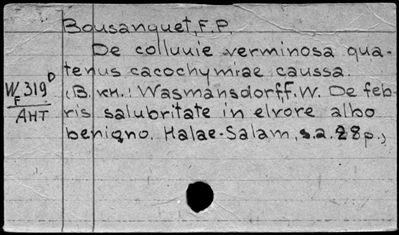 Bousanquet, F. P.
De colluuie verminosa qua-
tenus cacochymiae caussa.
W 319 D
F
АНТ
(В. кн.: Wasmansdorff. W. De feb-
ris salubritate in elvore albo
benigno. Halae-Salam, s.a. 28 p.,